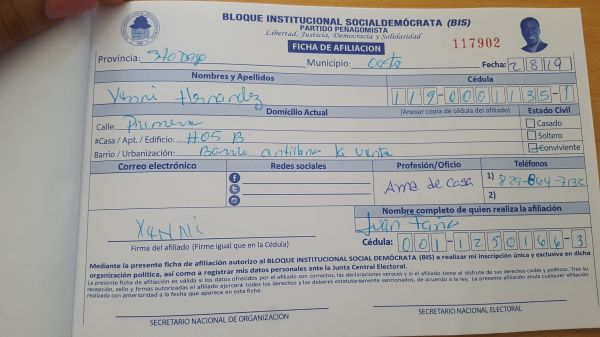 BLOQUE INSTITUCIONAL SOCIALDEMÓCRATA (BIS)
PARTIDO PEÑAGOMISTA
Libertad, Justicia, Democracia y Solidaridad
FICHA DE AFILIACION
117902
Provincia: Sto Dgo Municipio: Oeste Fecha: 2 8 19
Nombres y Apellidos Cédula
Yanni Hernandez 119-0001135-1
Domicilio Actual (Anexar copia de cédula del afiliado) Estado Civil
Calle: Primera Casado
#Casa / Apt. / Edificio: #05 B. Soltero
Barrio / Urbanización: Barrio antillana la venta Conviviente
Correo electrónico Redes sociales Profesión/Oficio Teléfonos
Ama de casa 1) 829-864-7132
2)
Nombre completo de quien realiza la afiliación
Yanni Juan
Firma del afiliado (Firme igual que en la Cédula) Cédula: 001-1250166-3
Mediante la presente ficha de afiliación autorizo al BLOQUE INSTITUCIONAL SOCIAL DEMÓCRATA (BIS) a realizar mi inscripción única y exclusiva en dicha
organización política, así como a registrar mis datos personales ante la Junta Central Electoral.
La presente ficha de afiliación es válida si los datos ofrecidos por el afiliado son correctos, las declaraciones veraces y si el afiliado tiene el disfrute de sus derechos civiles y políticos. Tras su
recepción, sello y firmas autorizadas el afiliado ejercerá todos los derechos y los deberes estatutariamente sancionados, de acuerdo a la ley. La presente afiliación anula cualquier afiliación
realizada con anterioridad a la fecha que aparece en esta ficha.
SECRETARIO NACIONAL DE ORGANIZACIÓN SECRETARIO NACIONAL ELECTORAL